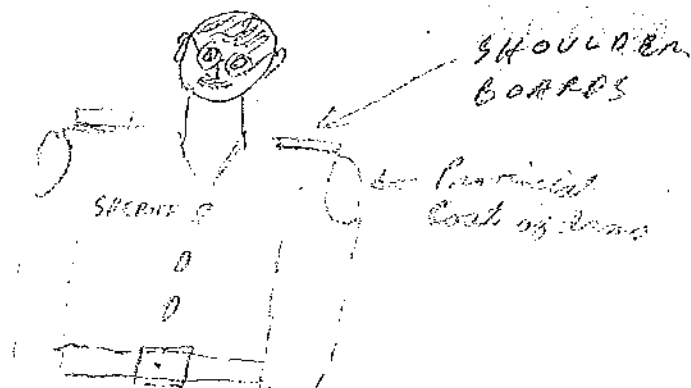 SHOULDER
BOARDS
Provincial
Coat of Arms
SHERIFF